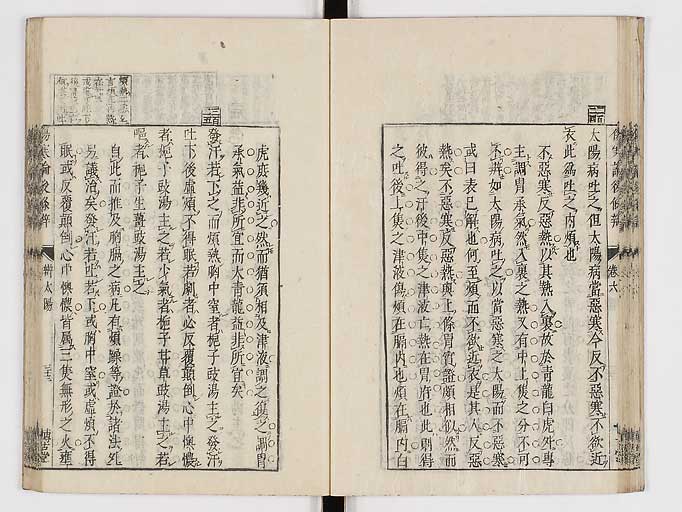 太陽病吐之但太陽病當惡寒今反不惡寒不欲近
衣此爲吐之內煩也
不惡寒反惡熱以其熱入裏故於青龍白虎外專
主調胃承氣然入裏之熱又有中上焦之分不可
不辨如太陽病吐之以當惡寒之太陽而不惡寒
或曰表已解也何至煩而不欲近衣是其人反惡
熱矣不惡寒反惡熱與上條胃實證頗相似然而
彼得之汗後中焦之津液亡熱在胃府也此則得
之吐後上焦之津液傷煩在膈內也煩在膈內白
虎庶幾近之然而猶須相及津液調之焦之調胃
承氣益非所宜而大青龍益非所宜矣
發汗若下之而煩熱胸中窒者梔子豉湯主之發汗
吐下後虛煩不得眠若劇者必反覆顛倒心中懊憹
者梔子豉湯主之若少氣者梔子甘草豉湯主之若
嘔者梔子生薑豉湯主之
自此而推及胸膈之病凡有煩躁等證於諸法外
另議治矣發汗若吐若下或胸中窒或虛煩不得
眠或反覆顛倒心中懊憹皆屬三焦無形之火壅
卷六
辨太陽